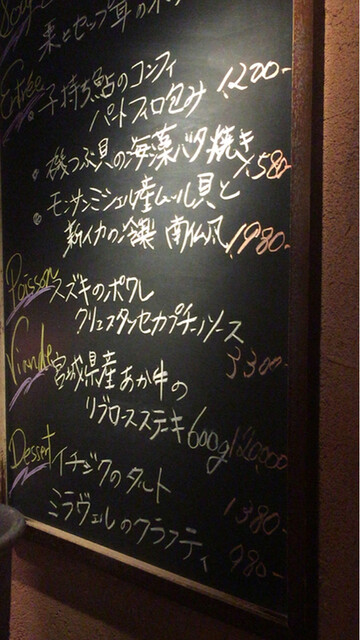 Soup
栗とセップ茸の
Entrée
子持ち鮎のコンフィ
パートフィロ包み 1,200-
磯つぶ貝の海藻バタ焼き
1,580-
モンサンミシェル産ムール貝と
新イカの冷製 南仏風 1,980-
Poisson
スズキのポワレ
クリュスタッセカプチーノソース
3300-
Viande
宮城県産あか牛の
リブロースステーキ 600g 12,0000
Dessert
イチジクのタルト
1380-
ミラヴェルのクラフティ
980-